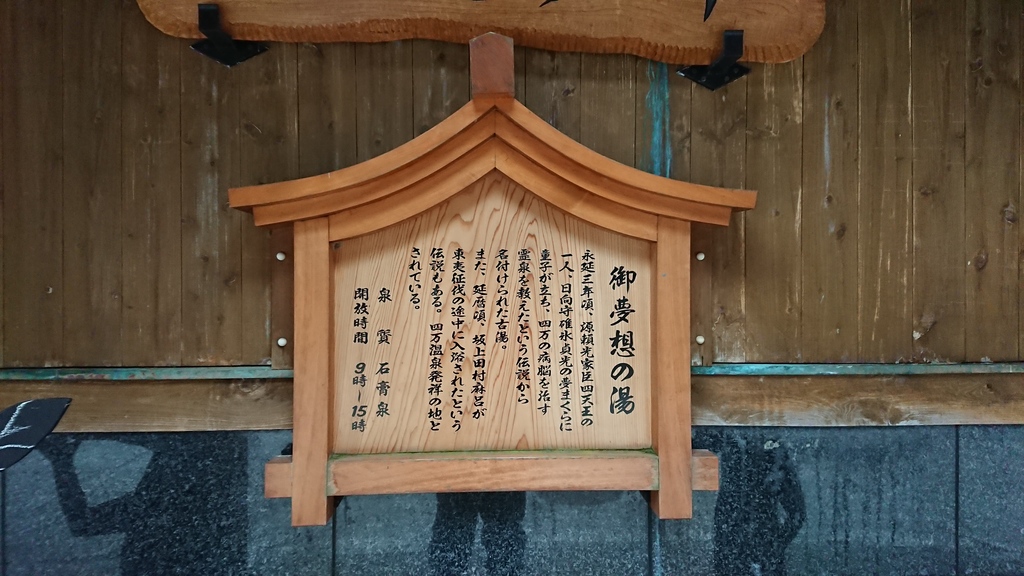 御夢想の湯
永延三年頃、源頼光家臣四天王の
一人、日向守碓氷貞光の夢まくらに
童子がたち、四万の病脳を治す
霊泉を教えたという伝説から
名付けられた古湯。
また、延暦頃、坂上田村麻呂が
東夷征伐の途中に入浴されたという
伝説もある。四万温泉発祥の地と
されている。
泉質 石膏泉
開放時間 9時~15時